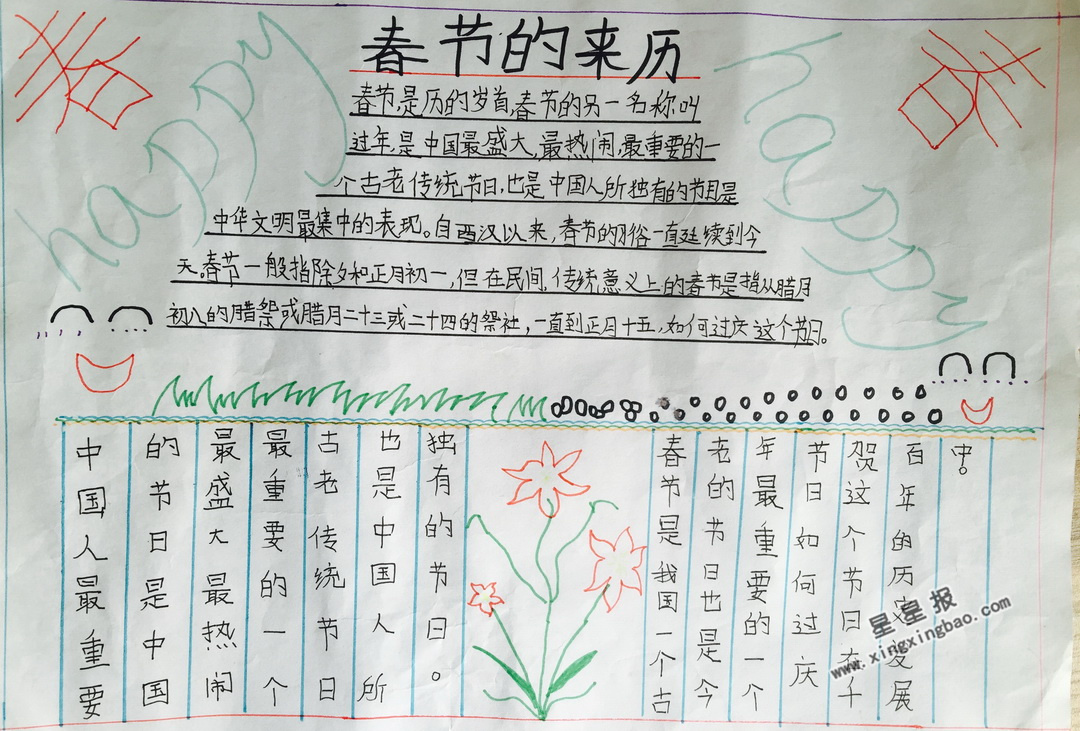 春节的来历
春
happy
happy
春
春节,是历的岁首,春节的另一名称叫
过年,是中国最盛大,最热闹,最重要的一
个古老传统节日,也是中国人所独有的节日是
中华文明最集中的表现。自西汉以来,春节的习俗一直延续到今
天。春节一般指除夕和正月初一,但在民间,传统意义上的春节是指从腊月
初八的腊祭或腊月二十三或二十四的祭社,一直到正月十五,如何过庆这个节日。
中国人最重要
的节日是中国
最盛大最热闹
最重要的一个
古老传统节日
也是中国人所
独有的节日。
春节是我国一个古
老的节日也是今
年最重要的一个
节日如何过庆
贺这个节日在千
百年的历史发展
中。
星星报
www.xingxingbao.com